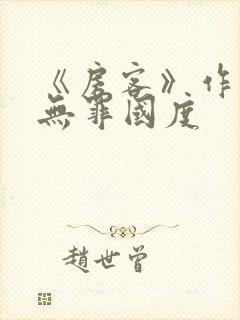 《房客》.作
無罪國度
趙世曾